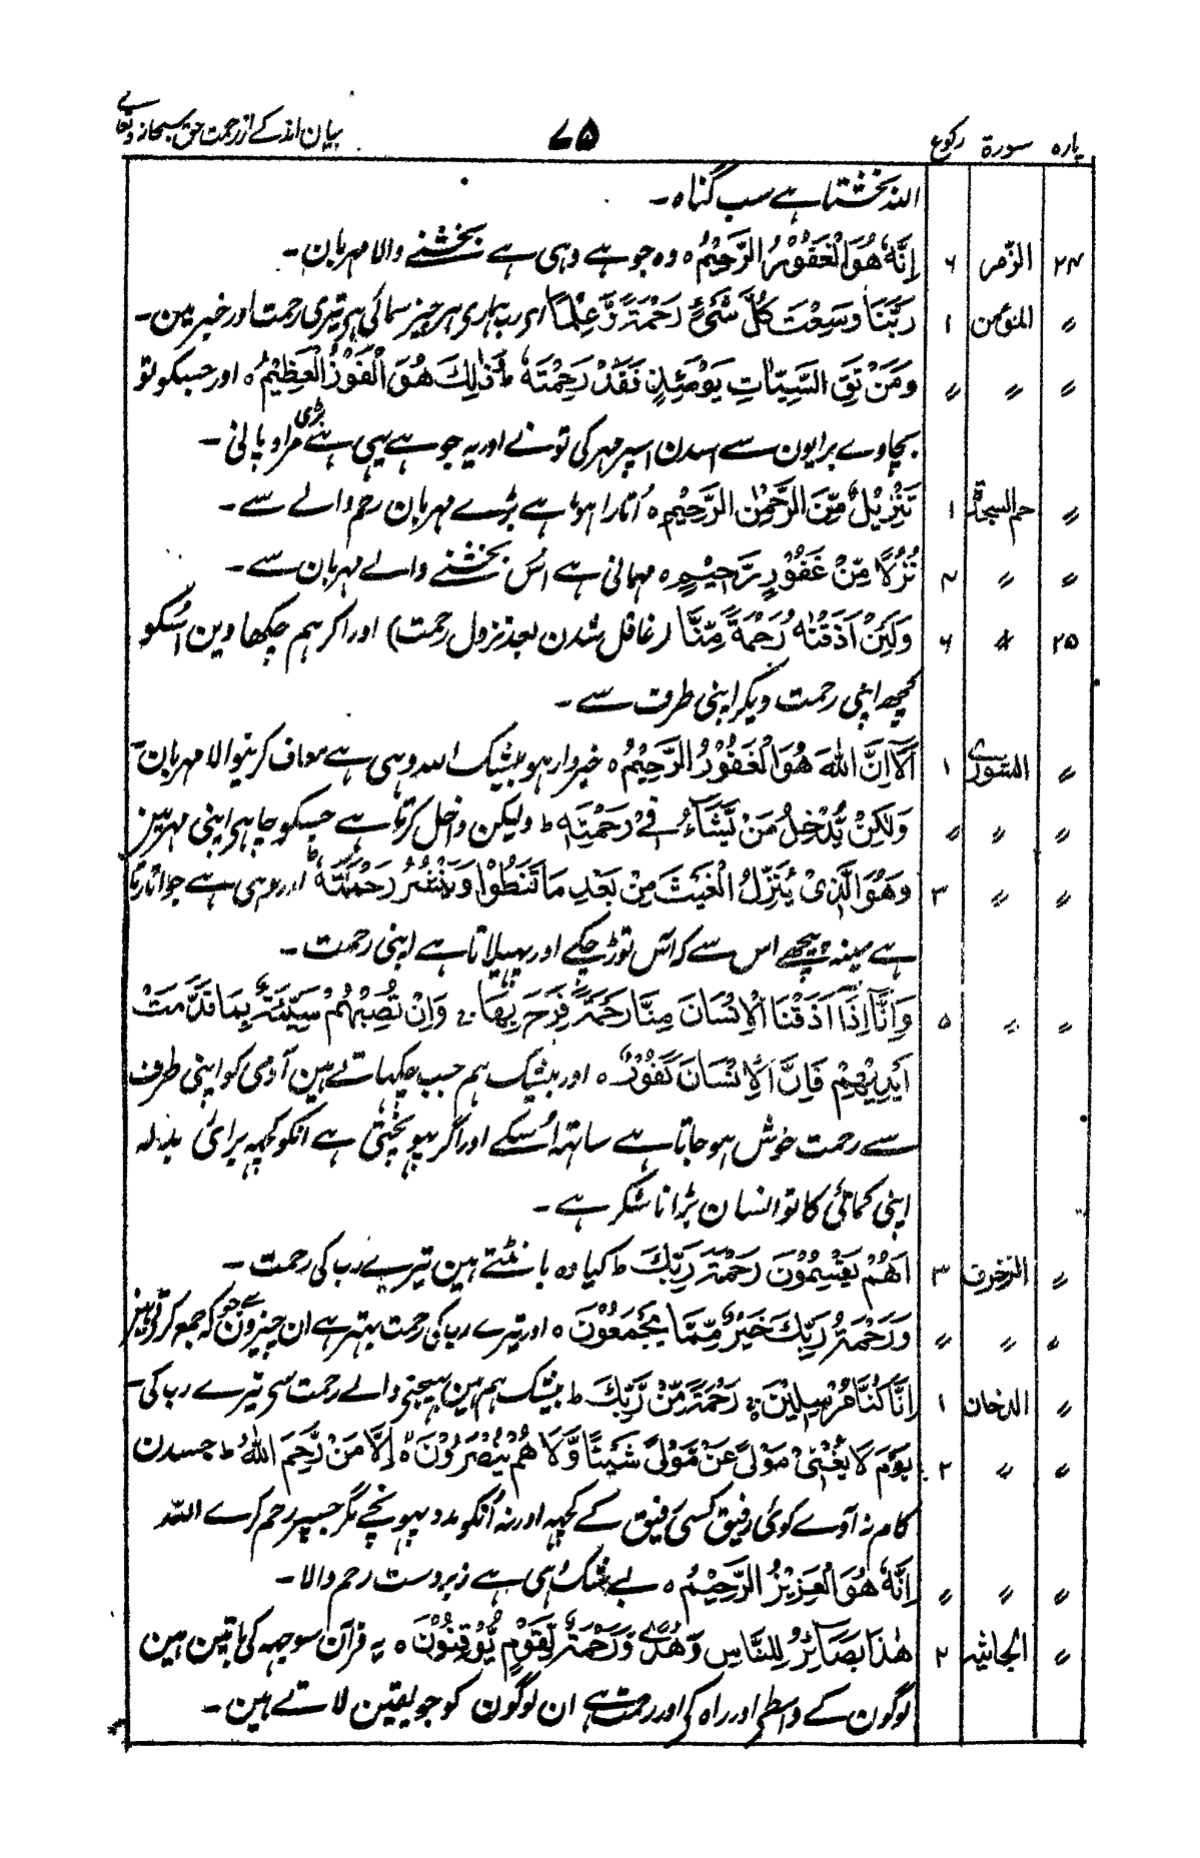 پارہ سورۃ رکوع ۷۵ بیان اندکے از رحمت حق سبحانہ و تعالےٰ
اللہ بخشتا ہے سب گناہ۔
۲۴ الزمر ۶ اِنَّہٗ ھُوَ الْغَفُوْرُ الرَّحِیْمُ ہ وہ جو ہے وہی ہے بخشنے والا مہربان۔
〃 المؤمن ۱ رَبَّنَا وَسِعْتَ کُلَّ شَیْءٍ رَّحْمَۃً وَّعِلْمًا ای رب ہماری ہر چیز سمائی ہی تیری رحمت اور خبر مین۔
〃 〃 〃 وَمَنْ تَقِ السَّیِّاٰتِ یَوْمَئِذٍ فَقَدْ رَحِمْتَہٗ ط وَذٰلِکَ ھُوَ الْفَوْزُ الْعَظِیْمُ ہ اور جسکو تو
بچاوے برایون سے اسدن اسپر مہر کی تو نے اور یہ جو ہے یہی ہے بڑی مراد پانی۔
〃 حم السجدۃ ۱ تَنْزِیْلٌ مِّنَ الرَّحْمٰنِ الرَّحِیْمِ ہ اُتارا ہوا ہے بڑے مہربان رحم والے سے۔
〃 〃 ۴ نُزُلًا مِّنْ غَفُوْرٍ رَّحِیْمٍ ہ مہمانی ہے اُس بخشنے والے مہربان سے۔
۲۵ 〃 ۶ وَلَئِنْ اَذَقْنٰہُ رَحْمَۃً مِّنَّا (غافل شدن بعد نزول رحمت) اور اگر ہم چکھا وین اُسکو
کچھ اپنی رحمت دیکر اپنی طرف سے۔
〃 الشوریٰ ۱ اَلَآ اِنَّ اللّٰہَ ھُوَ الْغَفُوْرُ الرَّحِیْمُ ہ خبردار ہو بیشک اللہ وہی ہے معاف کرنیوالا مہربان۔
〃 〃 〃 وَلٰکِنْ یُّدْخِلُ مَنْ یَّشَآءُ فِیْ رَحْمَتِہٖ ط ولیکن داخل کرتا ہے جسکو چاہی اپنی مہر مین
〃 〃 ۳ وَھُوَ الَّذِیْ یُنَزِّلُ الْغَیْثَ مِنْ بَعْدِ مَا قَنَطُوْا وَیَنْشُرُ رَحْمَتَہٗ ط اور وہی ہے جو اتارتا
ہے مینہ پیچھے اس سے کہ آس توڑ چکے اور پھیلاتا ہے اپنی رحمت۔
〃 〃 ۵ وَاِنَّآ اِذَآ اَذَقْنَا الْاِنْسَانَ مِنَّا رَحْمَۃً فَرِحَ بِھَا ج وَاِنْ تُصِبْھُمْ سَیِّئَۃٌ بِمَا قَدَّمَتْ
اَیْدِیْھِمْ فَاِنَّ الْاِنْسَانَ کَفُوْرٌ ہ اور بیشک ہم جب چکہاتے ہین آدمی کو اپنی طرف
سے رحمت خوش ہو جاتا ہے ساتہہ اُسکے اور اگر پہونچتی ہے انکو کچہہ برائی بدلہ
اپنی کمائی کا تو انسان بڑا ناشکر ہے۔
〃 الزخرف ۳ اَھُمْ یَقْسِمُوْنَ رَحْمَۃَ رَبِّکَ ط کیا وہ بانٹتے ہین تیرے رب کی رحمت۔
〃 〃 〃 وَرَحْمَۃُ رَبِّکَ خَیْرٌ مِّمَّا یَجْمَعُوْنَ ہ اور تیرے رب کی رحمت بہتر ہے ان چیزون سے جو کہ جمع کرتے ہین
〃 الدخان ۱ اِنَّا کُنَّا مُرْسِلِیْنَ ہ رَحْمَۃً مِّنْ رَّبِّکَ ط بیشک ہم ہین بہیجنی والے رحمت سی تیرے رب کی۔
〃 〃 ۲ یَوْمَ لَا یُغْنِیْ مَوْلًی عَنْ مَّوْلًی شَیْئًا وَّلَا ھُمْ یُنْصَرُوْنَ ہ اِلَّا مَنْ رَّحِمَ اللّٰہُ ط جسدن
کام نہ آوے کوئی رفیق کسی رفیق کے کچہہ اور نہ اُنکو مدد پہونچے مگر جسپر رحم کرے اللہ
〃 〃 〃 اِنَّہٗ ھُوَ الْعَزِیْزُ الرَّحِیْمُ ہ بے شک وُہی ہے زبردست رحم والا۔
〃 الجاثیہ ۲ ھٰذَا بَصَآئِرُ لِلنَّاسِ وَھُدًی وَّرَحْمَۃٌ لِّقَوْمٍ یُّوْقِنُوْنَ ہ یہ قرآن سوجہہ کی باتین ہین
لوگون کے واسطی اور راہ کی اور رحمت ہے ان لوگون کو جو یقین لاتے ہین۔